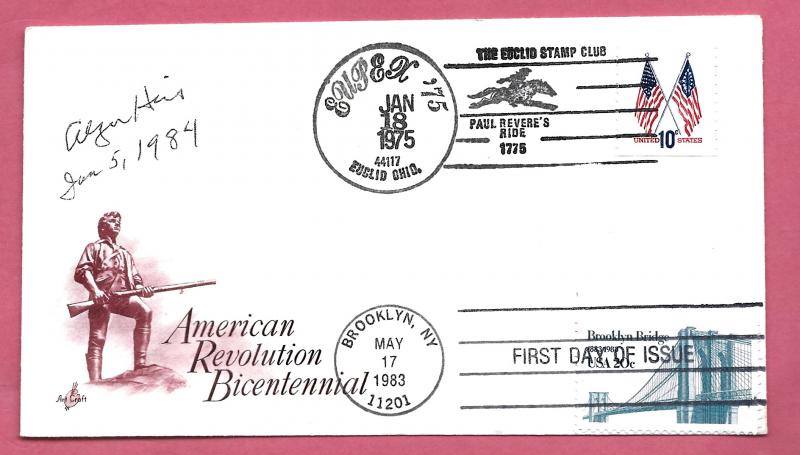 Alger Hiss
Jan 5, 1984
EUPEX '75
JAN
18
1975
44117
EUCLID OHIO.
THE EUCLID STAMP CLUB
PAUL REVERE'S
RIDE
1775
10c
UNITED STATES
American
Revolution
Bicentennial
Art Craft
BROOKLYN, NY
MAY
17
1983
11201
FIRST DAY OF ISSUE
Brooklyn Bridge
1883-1983
USA 20c